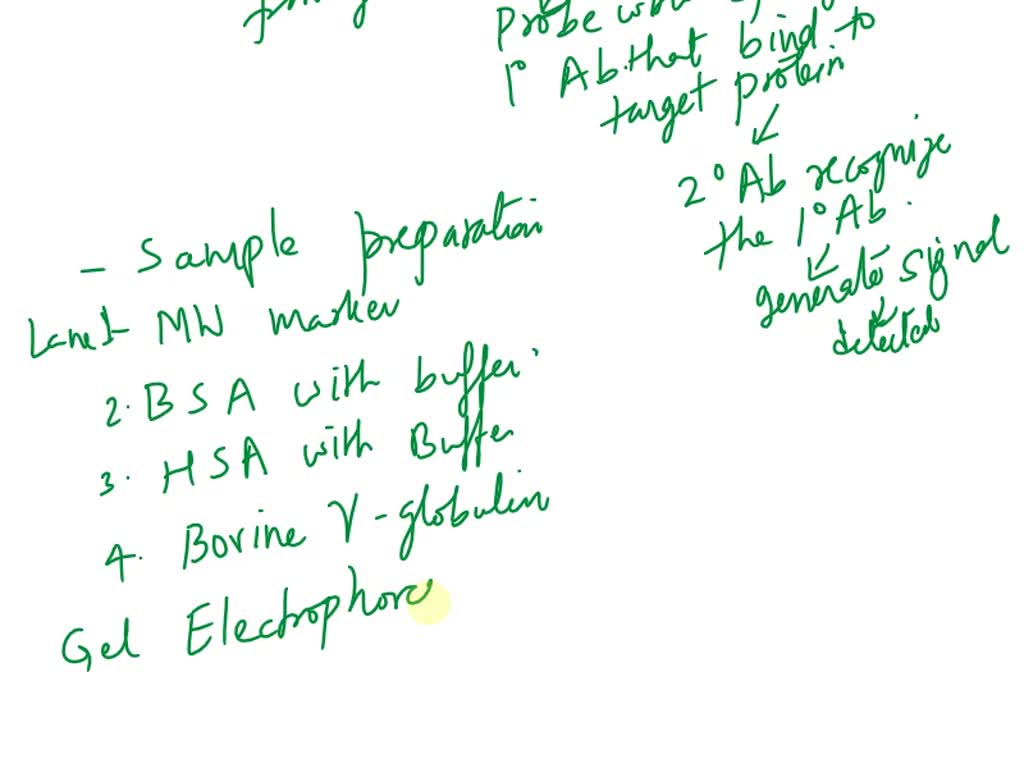 Probe
1° Ab. that bind to
target protein
↙
2° Ab recognize
the 1° Ab.
↙
generate signal
↙
detected
- Sample preparation
Lane 1- MW marker
2. BSA with buffer.
3. HSA with Buffer
4. Bovine γ-globulin
Gel Electrophore